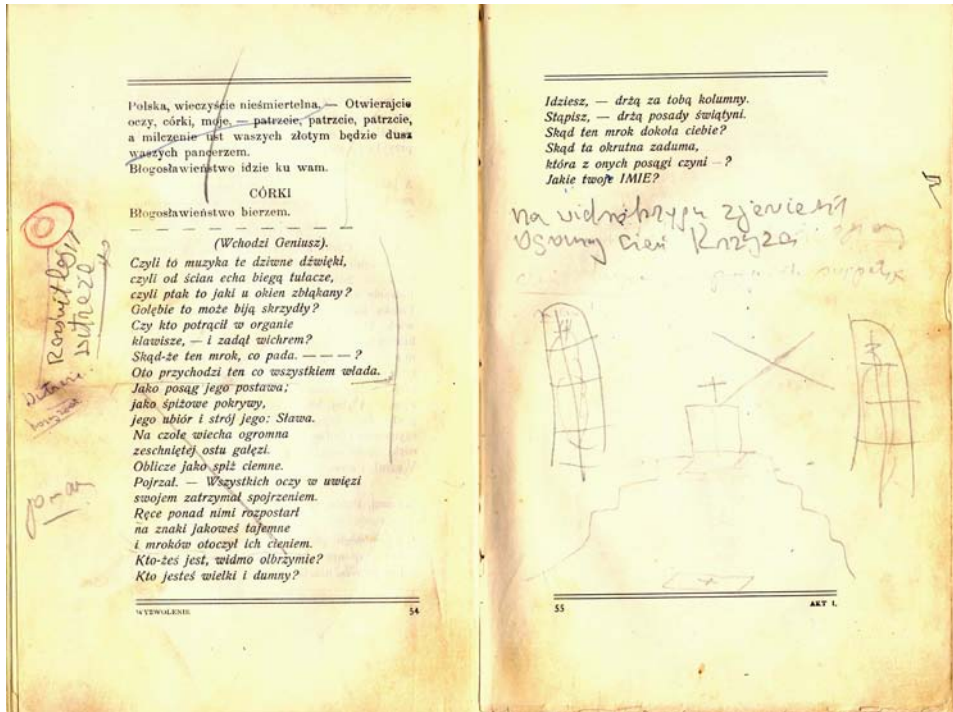 Polska, wieczyście nieśmiertelna, — Otwierajcie
oczy, córki, moje, — patrzcie, patrzcie, patrzcie,
a milczenie ust waszych złotym będzie dusz
waszych pancerzem.
Błogosławieństwo idzie ku wam.
CÓRKI
Błogosławieństwo bierzem.
(Wchodzi Geniusz).
Czyli to muzyka te dziwne dźwięki,
czyli od ścian echa biegą tułacze,
czyli ptak to jaki u okien zbłąkany?
Gołębie to może biją skrzydły?
Czy kto potrącił w organie
klawisze, — i zadął wichrem?
Skąd-że ten mrok, co pada. — — — ?
Oto przychodzi ten co wszystkiem włada.
Jako posąg jego postawa;
jako śpiżowe pokrywy,
jego ubiór i strój jego: Sława.
Na czole wiecha ogromna
zeschniętej ostu gałęzi.
Oblicze jako spiż ciemne.
Pojrzał. — Wszystkich oczy w uwięzi
swojem zatrzymał spojrzeniem.
Ręce ponad nimi rozpostarł
na znaki jakoweś tajemne
i mroków otoczył ich cieniem.
Kto-żeś jest, widmo olbrzymie?
Kto jesteś wielki i dumny?
WYZWOLENIE
54
Idziesz, — drżą za tobą kolumny.
Stąpisz, — drżą posady świątyni.
Skąd ten mrok dokoła ciebie?
Skąd ta okrutna zaduma,
która z onych posągi czyni — ?
Jakie twoje IMIE?
na widnokręgu zjawia się
Ogromny cień Krzyża
55
AKT I.